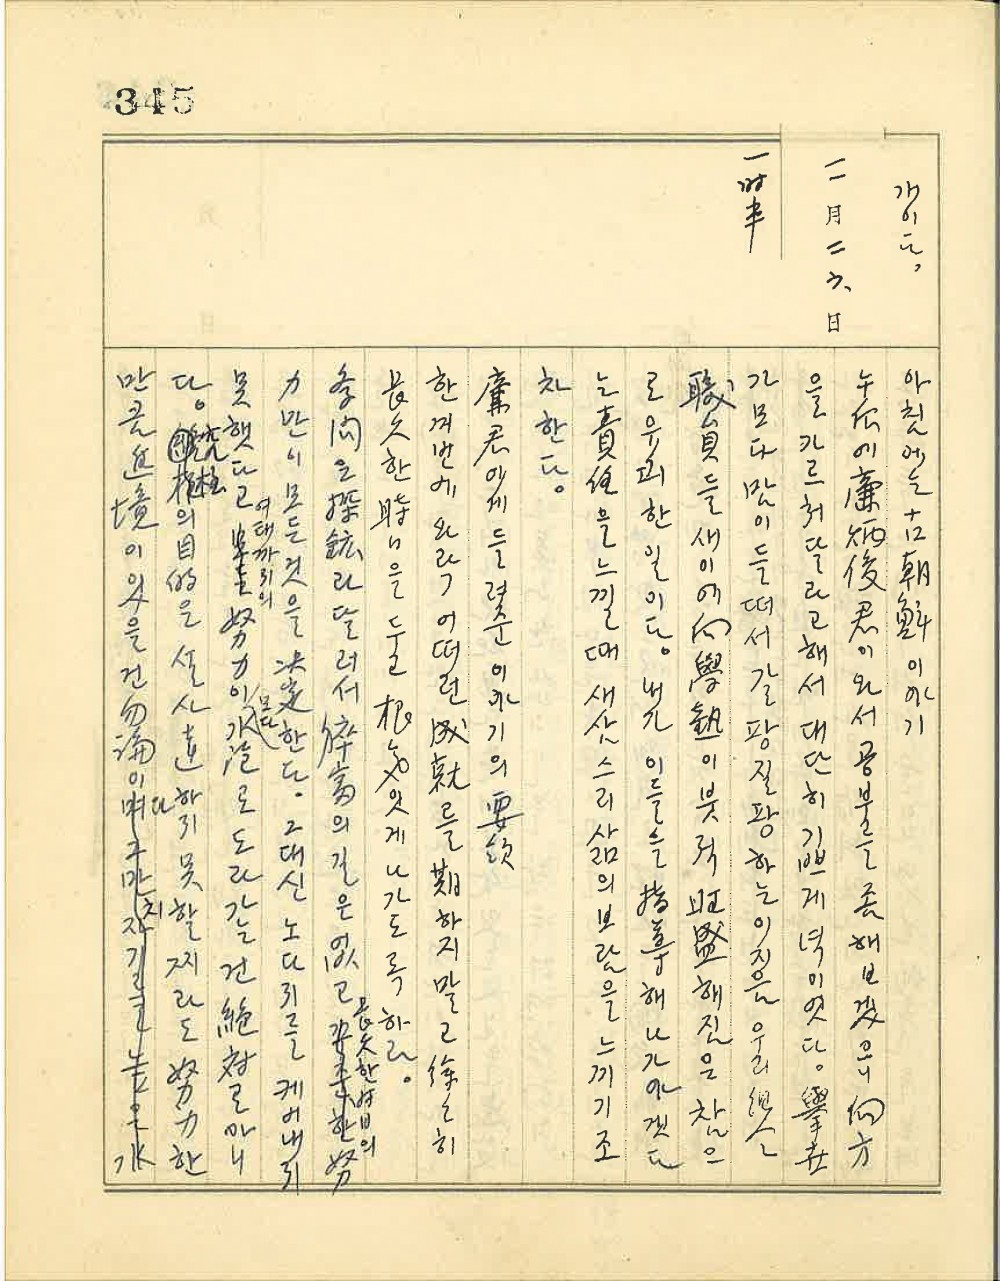 345
개이다,
二月二六、日
一時半
아침에는 古朝鮮 이야기
午后에 廉炳俊君이 와서 공불를 좀 해보겠으니 向方
을 카르처달라고해서 대단히 기쁘게 녁이엿다. 擧世
가 모다 맘이 들떠서 갈팡질팡하는 이지음 우리
職員들 새이에 向學熱이 붓적 旺盛해짐은 참으
로 유쾌한일이다. 내가 이들을 指導해나가야겟다
는 責任을 느낄때 새삼스리 삶의 보람을 느끼기조
차 한다.
廉君에게 들려준 이야기의 要領
한꺼번에 와락 어떠런 成就를 期하지말고 徐々히
長久한 時日을 두고 根氣잇게 나가도록 하라.
學問은 探鑛과 달러서 猝富의 길은 없고 長久한 애비의 努
力만이 모든것을 決定한다. 그대신 노다지를 케여내지
못햇다고 여태까지의 努力이 모다 水泡로 도라갈건 絶対로 아니
다. 究極의 目的은 설사 達하지 못할찌라도 努力한
만큼 進境이 있을건 勿論이다